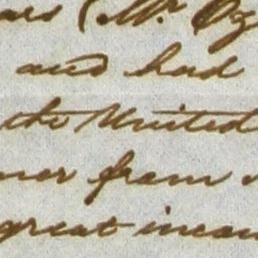 (Mr. Oz
and had
the United
from
great incon